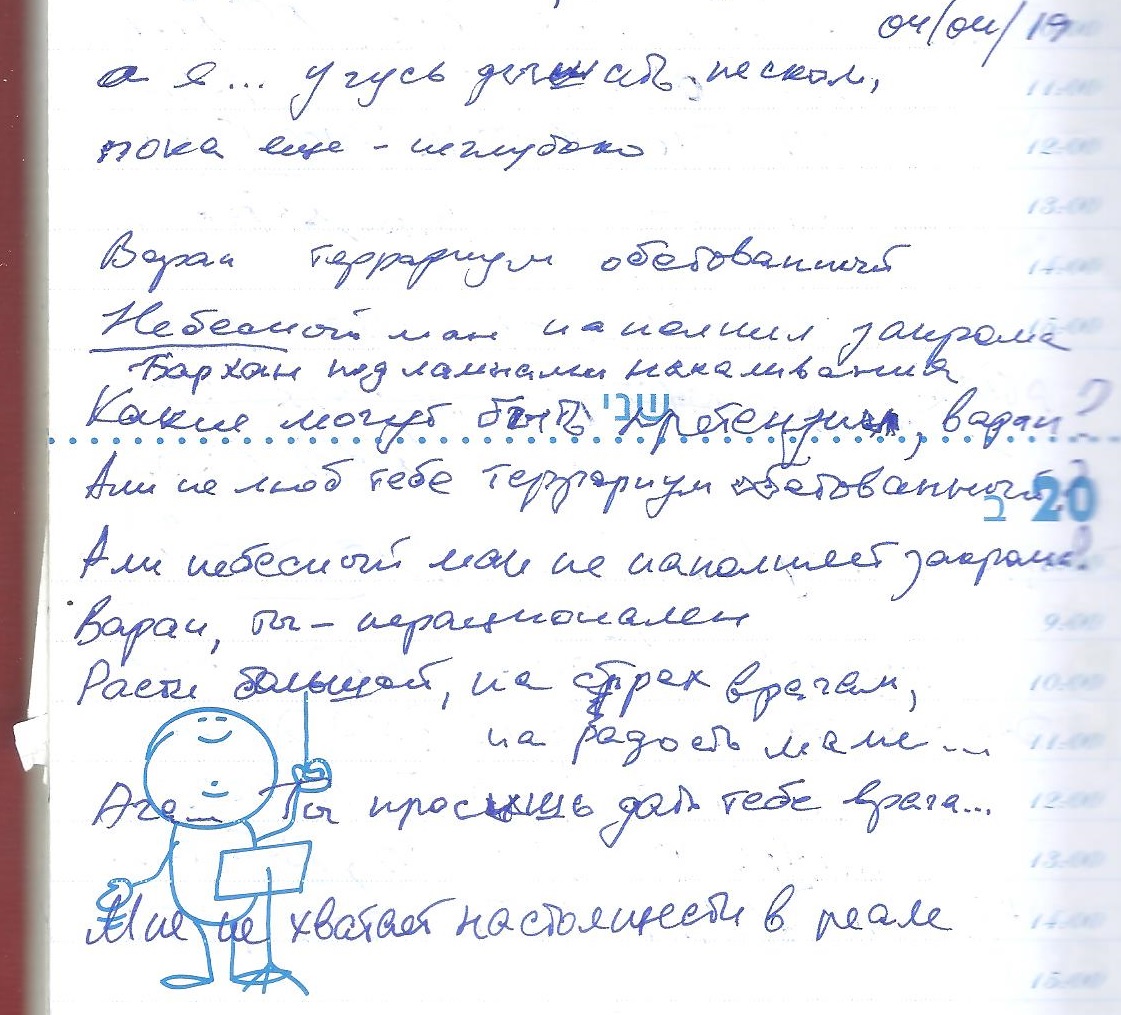 04/04/19
а я... учусь дышать песком,
11:00
пока еще - неглубоко
12:00
13:00
Варан террариум обетованный
14:00
Небесный ман наполнил закрома
Бархан под лампами накаливания
שני
Какие могут быть претензии, варан?
Али не люб тебе террариум обетованный?
ב 20
Али небесный ман не наполняет закрома?
Варан, ты - нерационален
9:00
Расти большой, на страх врагам,
10:00
на радость маме...
11:00
Ага... Ты просишь дать тебе врага...
12:00
13:00
Мне не хватает настоящести в реале
14:00
15:00